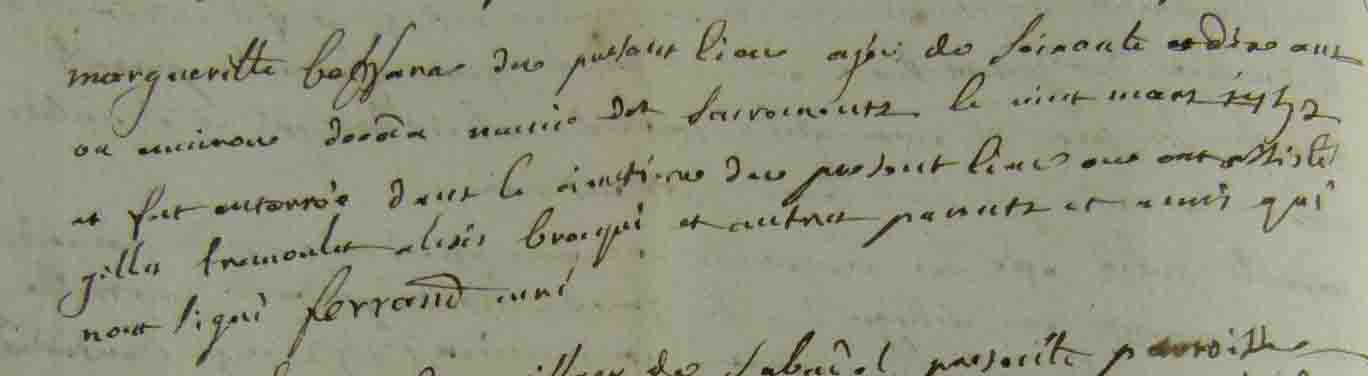 margueritte boissane du present lieu agée de soixante et dix ans
ou environ deceda munie des sacrements le vint mars
et fut enterrée dans le cimetiere du present lieu ou ont assisté
gilles tremoulet alexis broqui et autres parents et amis qui
n'ont signé ferrand curé
de presente parroisse